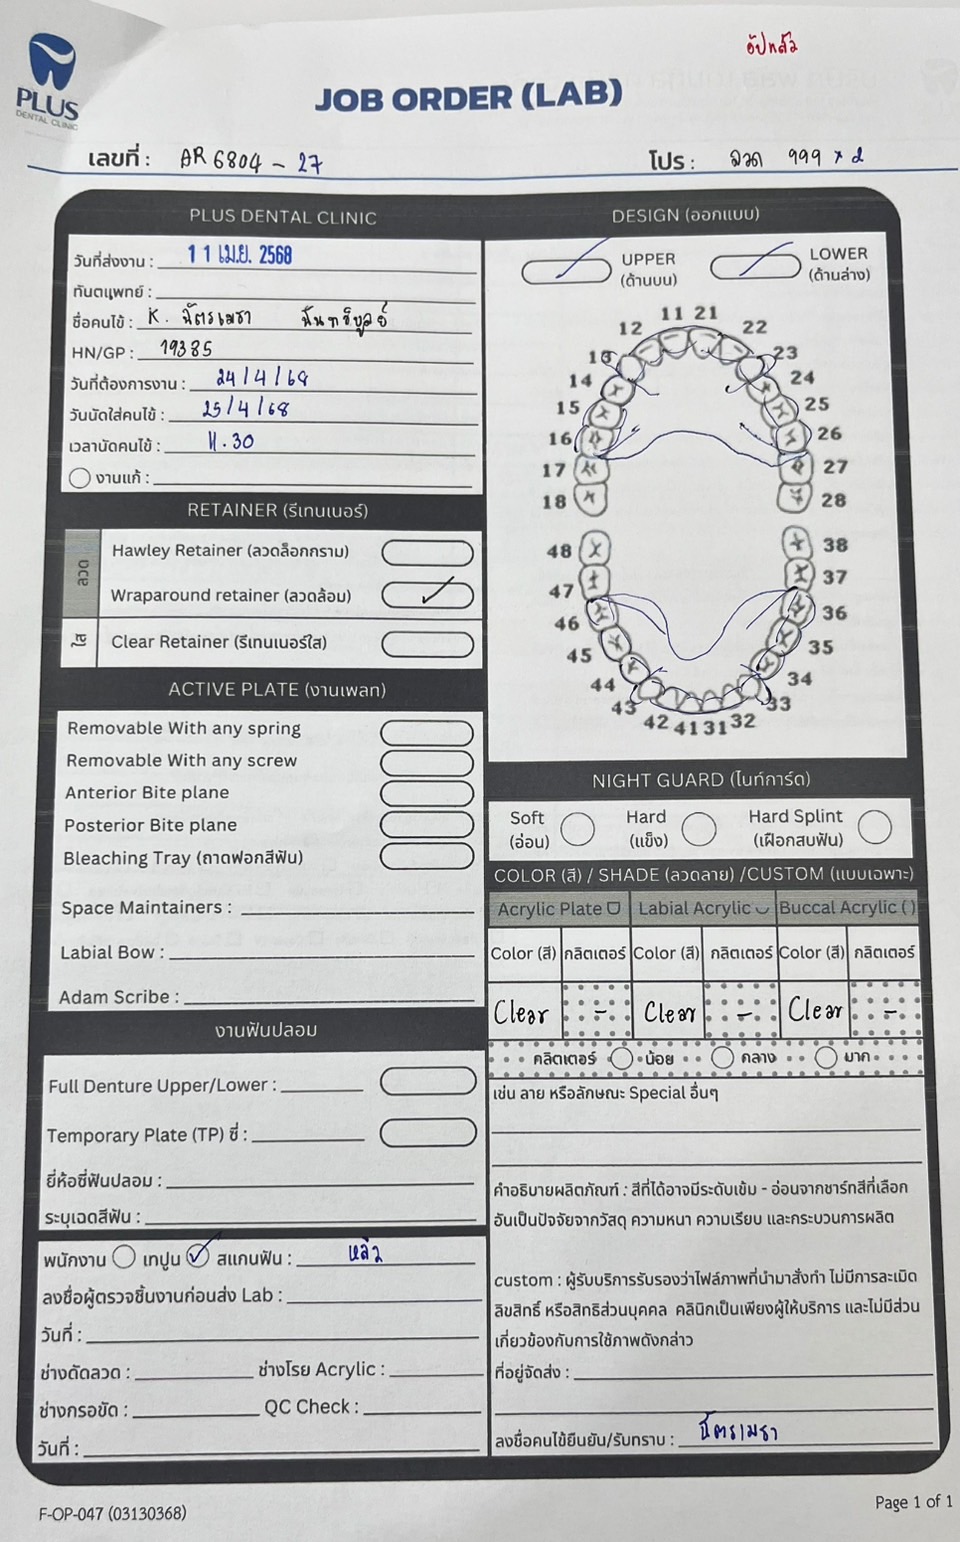 อัปแล้ว
PLUS
DENTAL CLINIC
JOB ORDER (LAB)
เลขที่ : AR 6804 - 27
โปร : ลวด 999 x 2
PLUS DENTAL CLINIC
วันที่ส่งงาน : 11 เม.ย. 2568
ทันตแพทย์ :
ชื่อคนไข้ : K. ฉัตรเมธา
HN/GP : 19385
วันที่ต้องการงาน : 24/4/68
วันนัดใส่คนไข้ : 25/4/68
เวลานัดคนไข้ : 11.30
งานแก้ :
RETAINER (รีเทนเนอร์)
ลวด
Hawley Retainer (ลวดล็อกกราม)
Wraparound retainer (ลวดล้อม)
ใส
Clear Retainer (รีเทนเนอร์ใส)
ACTIVE PLATE (งานเพลท)
Removable With any spring
Removable With any screw
Anterior Bite plane
Posterior Bite plane
Bleaching Tray (ถาดฟอกสีฟัน)
Space Maintainers :
Labial Bow :
Adam Scribe :
งานฟันปลอม
Full Denture Upper/Lower :
Temporary Plate (TP) ซี่ :
ยี่ห้อซี่ฟันปลอม :
ระบุเฉดสีฟัน :
พนักงาน เทปูน สแกนฟัน : หลิว
ลงชื่อผู้ตรวจชิ้นงานก่อนส่ง Lab :
วันที่ :
ช่างดัดลวด : ช่างโรย Acrylic :
ช่างกรอขัด : QC Check :
วันที่ :
DESIGN (ออกแบบ)
UPPER
(ด้านบน)
LOWER
(ด้านล่าง)
11 21
12 22
13 23
14 24
15 25
16 26
17 27
18 28
48 38
47 37
46 36
45 35
44 34
43 33
42 41 31 32
NIGHT GUARD (ไนท์การ์ด)
Soft
(อ่อน)
Hard
(แข็ง)
Hard Splint
(เฝือกสบฟัน)
COLOR (สี) / SHADE (ลวดลาย) /CUSTOM (แบบเฉพาะ)
Acrylic Plate Labial Acrylic Buccal Acrylic ( )
Color (สี) กลิตเตอร์ Color (สี) กลิตเตอร์ Color (สี) กลิตเตอร์
Clear - Clear - Clear -
คลิตเตอร์ น้อย กลาง มาก
เช่น ลาย หรือลักษณะ Special อื่นๆ
คำอธิบายผลิตภัณฑ์ : สีที่ได้อาจมีระดับเข้ม - อ่อนจากชาร์ทสีที่เลือก
อันเป็นปัจจัยจากวัสดุ ความหนา ความเรียบ และกระบวนการผลิต
custom : ผู้รับบริการรับรองว่าไฟล์ภาพที่นำมาสั่งทำ ไม่มีการละเมิด
ลิขสิทธิ์ หรือสิทธิส่วนบุคคล คลินิกเป็นเพียงผู้ให้บริการ และไม่มีส่วน
เกี่ยวข้องกับการใช้ภาพดังกล่าว
ที่อยู่จัดส่ง :
ลงชื่อคนไข้ยืนยัน/รับทราบ : ฉัตรเมธา
F-OP-047 (03130368)
Page 1 of 1